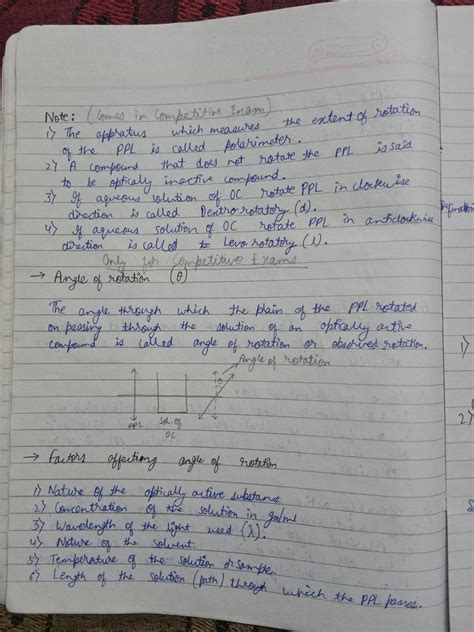 Note: (Comes in Competitive Exam)
1) The appratus which measures the extent of rotation
of the PPL is called polarimeter.
2) A compound that does not rotate the PPL is said
to be optically inactive compound.
3) If aqueous solution of OC rotate PPL in clockwise
direction is called Dextro rotatory (d).
4) If aqueous solution of OC rotate PPL in anticlockwise
direction is called to Levo rotatory (l).
Only for Competitive Exams
→ Angle of rotation (θ)
The angle through which the plain of the PPL rotated
on passing through the solution of an optically active
compound is called angle of rotation or observed rotation.
Angle of rotation
θ
PPL
Sol. of
OC
→ Factors affectiong angle of rotation
1) Nature of the optically active substance
2) Concentration of the solution in gm/ml
3) Wavelength of the light used (λ).
4) Nature of the solvent.
5) Temperature of the solution or sample.
6) Length of the solution (path) through which the PPL passes.
1)
2)